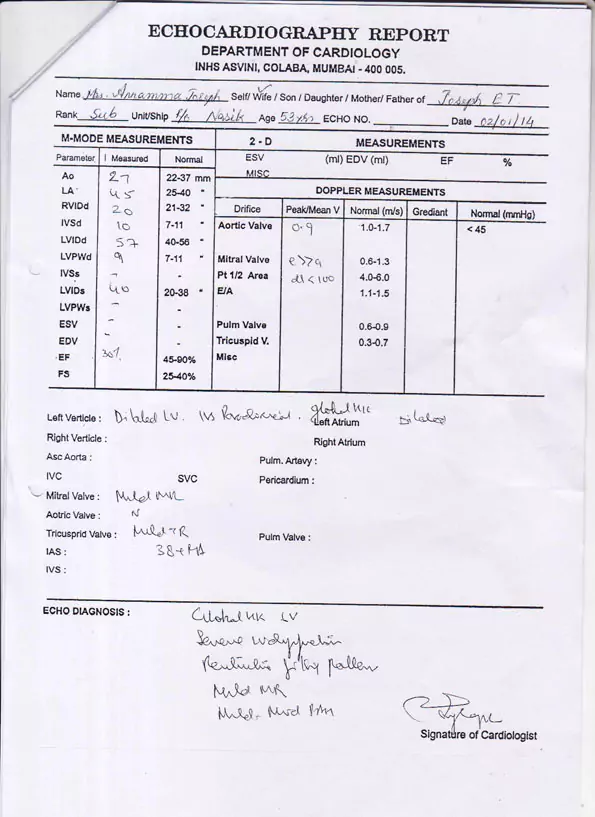 ECHOCARDIOGRAPHY REPORT
DEPARTMENT OF CARDIOLOGY
INHS ASVINI, COLABA, MUMBAI - 400 005.
Name Mrs. Annamma Joseph Self/ Wife / Son / Daughter / Mother/ Father of Joseph ET
Rank Sub Unit/Ship Nasik Age 53 yrs ECHO NO. Date 02/01/14
M-MODE MEASUREMENTS 2 - D MEASUREMENTS
Parameter Measured Normal ESV (ml) EDV (ml) EF %
MISC
Ao 27 22-37 mm
LA 45 25-40 " DOPPLER MEASUREMENTS
RVIDd 20 21-32 " Drifice Peak/Mean V Normal (m/s) Grediant Normal (mmHg)
IVSd 10 7-11 " Aortic Valve 0.9 1.0-1.7 < 45
LVIDd 57 40-56 "
LVPWd 9 7-11 " Mitral Valve e>>a 0.6-1.3
IVSs - - Pt 1/2 Area dt < 100 4.0-6.0
LVIDs 40 20-38 " E/A 1.1-1.5
LVPWs - -
ESV - - Pulm Valve 0.6-0.9
EDV - - Tricuspid V. 0.3-0.7
EF 30% 45-90% Misc
FS 25-40%
Left Verticle : Dilated LV. IVS Paradoxical. global HK Left Atrium Dilated
Right Verticle : Right Atrium
Asc Aorta : Pulm. Artevy :
IVC SVC Pericardium :
Mitral Valve : Mild MR
Aotric Valve : N
Tricusprid Valve : Mild TR Pulm Valve :
IAS : 38+RA
IVS :
ECHO DIAGNOSIS :
Global HK LV
Severe LV dysfunction
Restrictive filling pattern
Mild MR
Mild - Mod PAH
Signature of Cardiologist